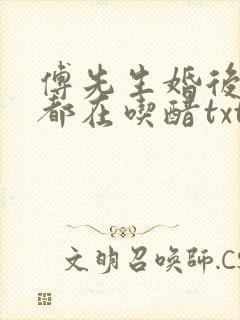 傅先生婚後
都在喫醋txt
文明召唤師.CS